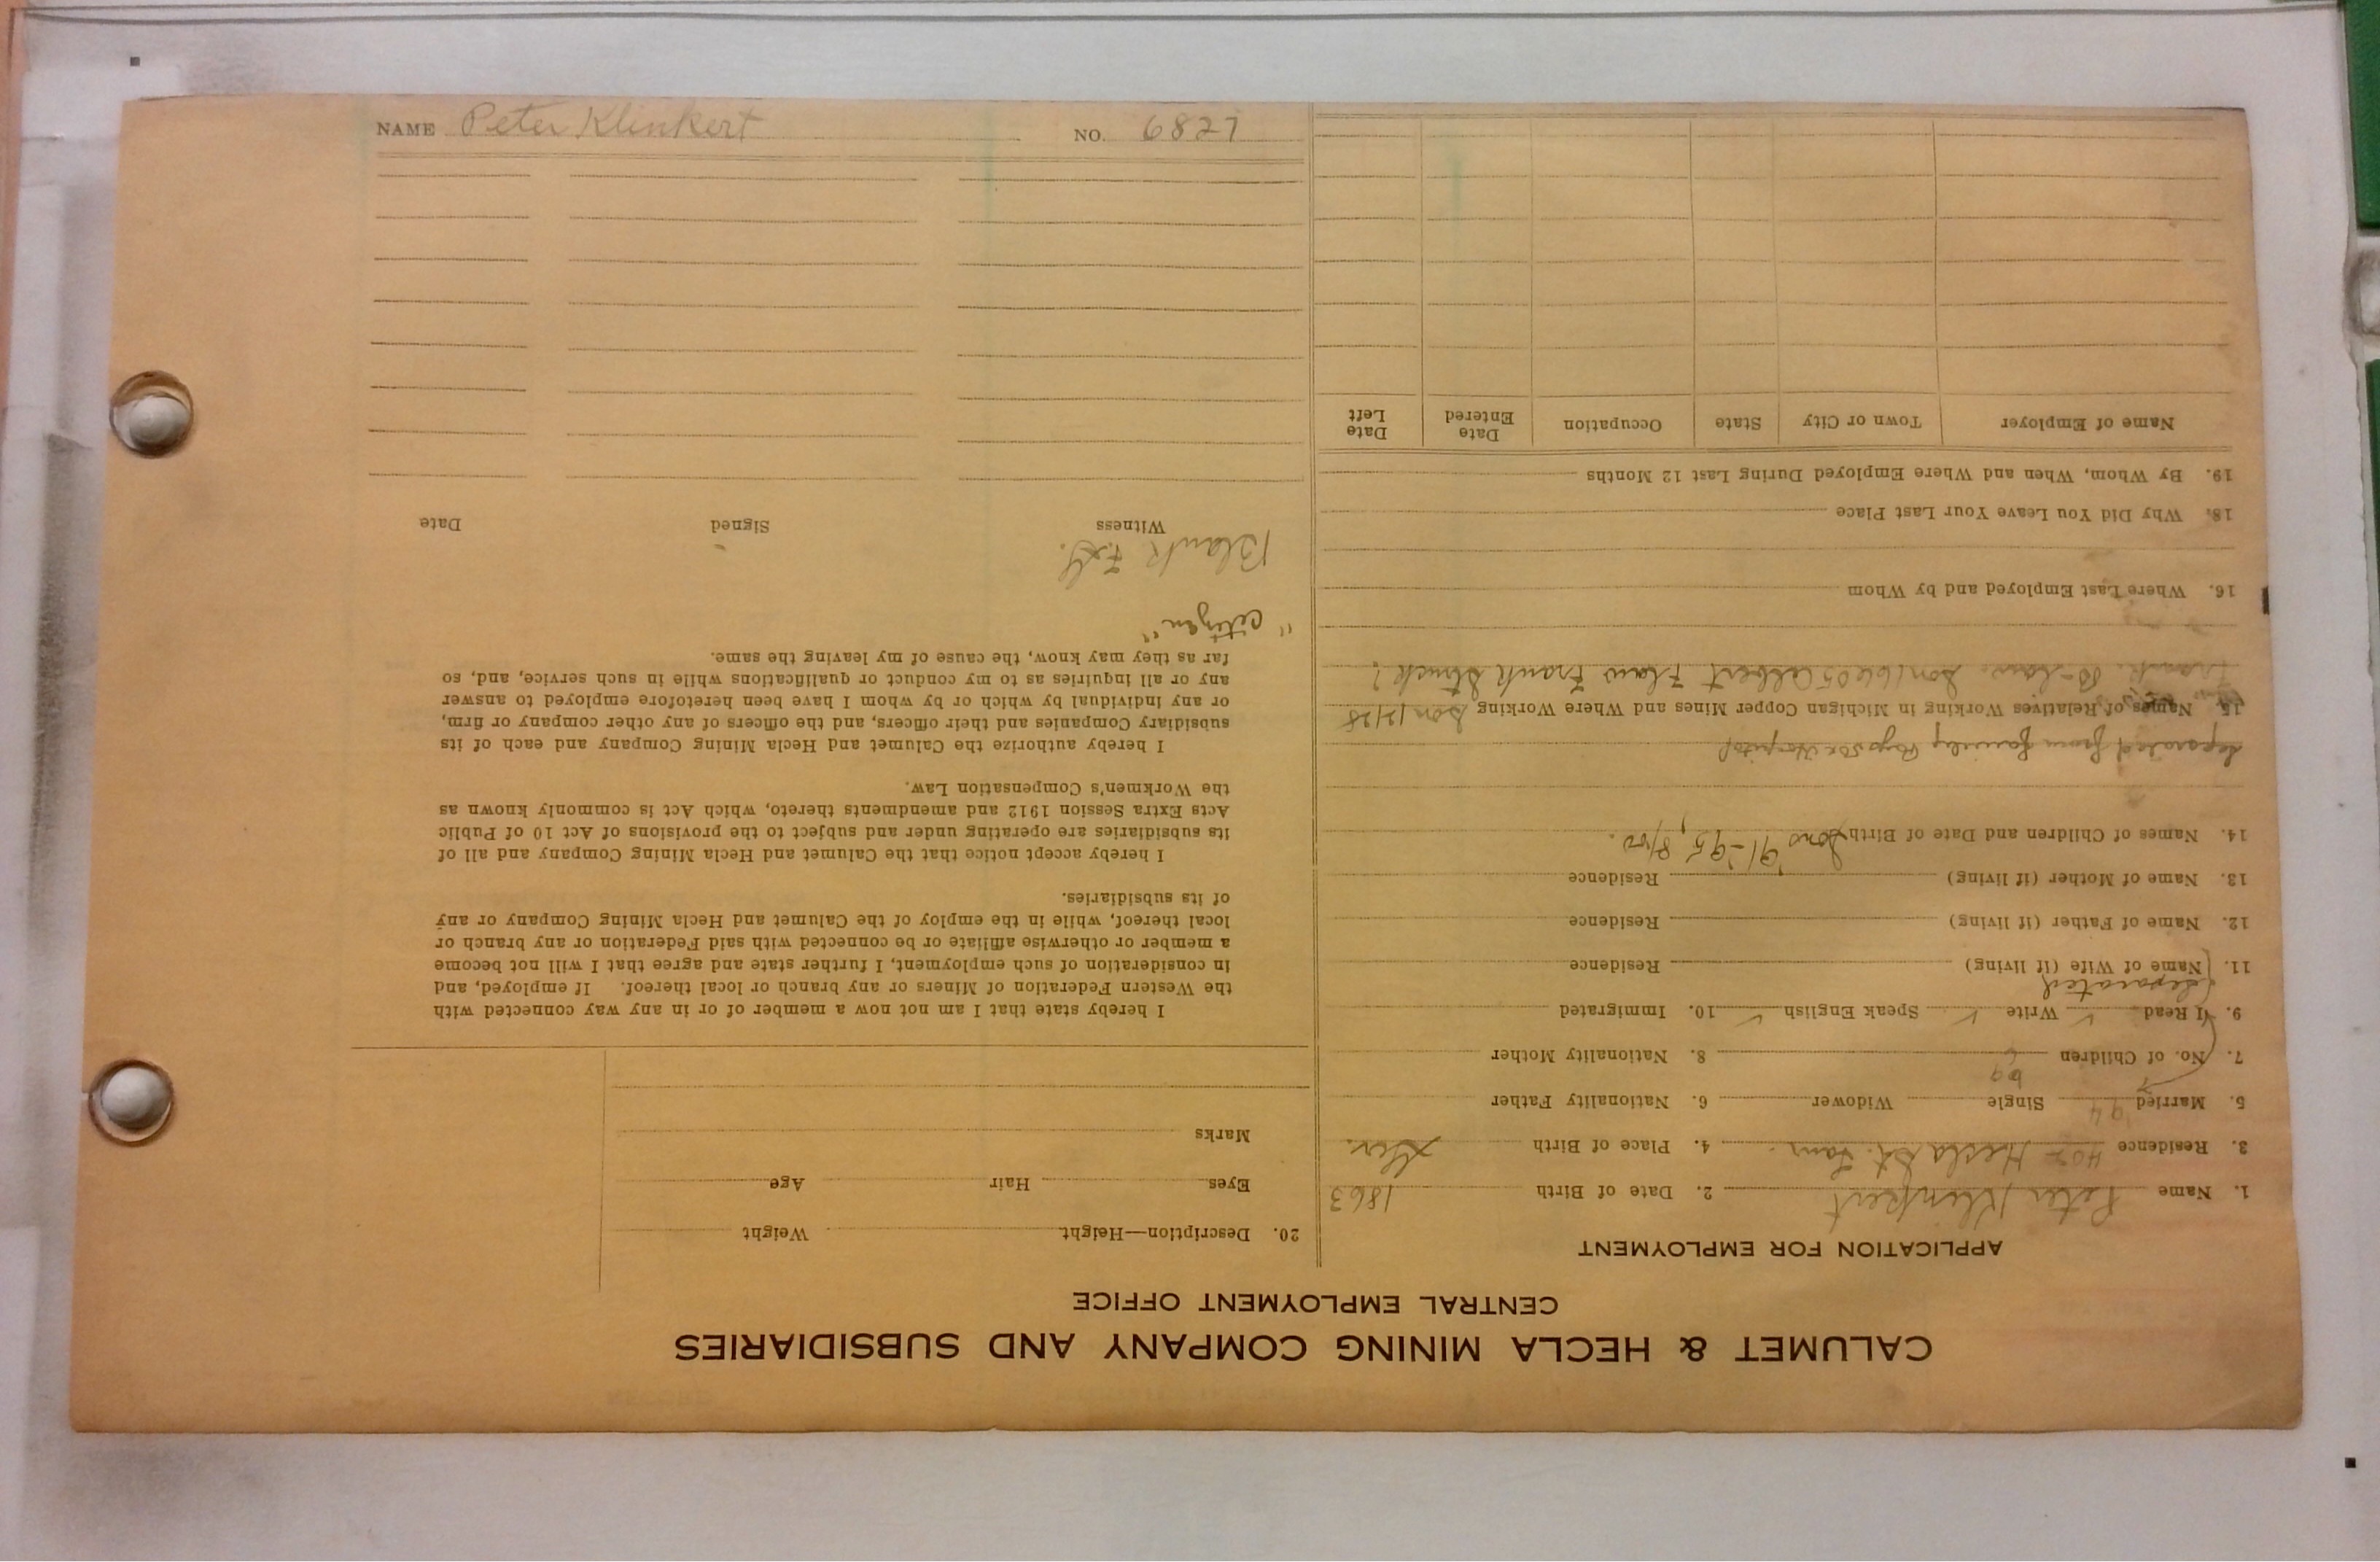 NAME Peter Klinkert NO. 6827
CALUMET & HECLA MINING COMPANY AND SUBSIDIARIES
CENTRAL EMPLOYMENT OFFICE
APPLICATION FOR EMPLOYMENT
1. Name Peter Klinkert 2. Date of Birth 1863
3. Residence Hecla St. 4. Place of Birth Ger.
5. Married '94 Single Widower 6. Nationality Father
7. No. of Children 6 8. Nationality Mother
9. I Read ✓ Write ✓ Speak English ✓ 10. Immigrated
(Separated
11. Name of Wife (if living) Residence
12. Name of Father (if living) Residence
13. Name of Mother (if living) Residence
14. Names of Children and Date of Birth Sons '91-'95, 8/00.
Separated from family
15. Names of Relatives Working in Michigan Copper Mines and Where Working Son 12128
Son 16605 Albert Frank
16. Where Last Employed and by Whom
18. Why Did You Leave Your Last Place
19. By Whom, When and Where Employed During Last 12 Months
Name of Employer Town or City State Occupation Date Entered Date Left
20. Description—Height Weight
Eyes Hair Age
Marks
I hereby state that I am not now a member of or in any way connected with
the Western Federation of Miners or any branch or local thereof. If employed, and
in consideration of such employment, I further state and agree that I will not become
a member or otherwise affiliate or be connected with said Federation or any branch or
local thereof, while in the employ of the Calumet and Hecla Mining Company or any
of its subsidiaries.
I hereby accept notice that the Calumet and Hecla Mining Company and all of
its subsidiaries are operating under and subject to the provisions of Act 10 of Public
Acts Extra Session 1912 and amendments thereto, which Act is commonly known as
the Workmen's Compensation Law.
I hereby authorize the Calumet and Hecla Mining Company and each of its
subsidiary Companies and their officers, and the officers of any other company or firm,
or any individual by which or by whom I have been heretofore employed to answer
any or all inquiries as to my conduct or qualifications while in such service, and, so
far as they may know, the cause of my leaving the same.
"citizen"
Blank
Witness Signed Date